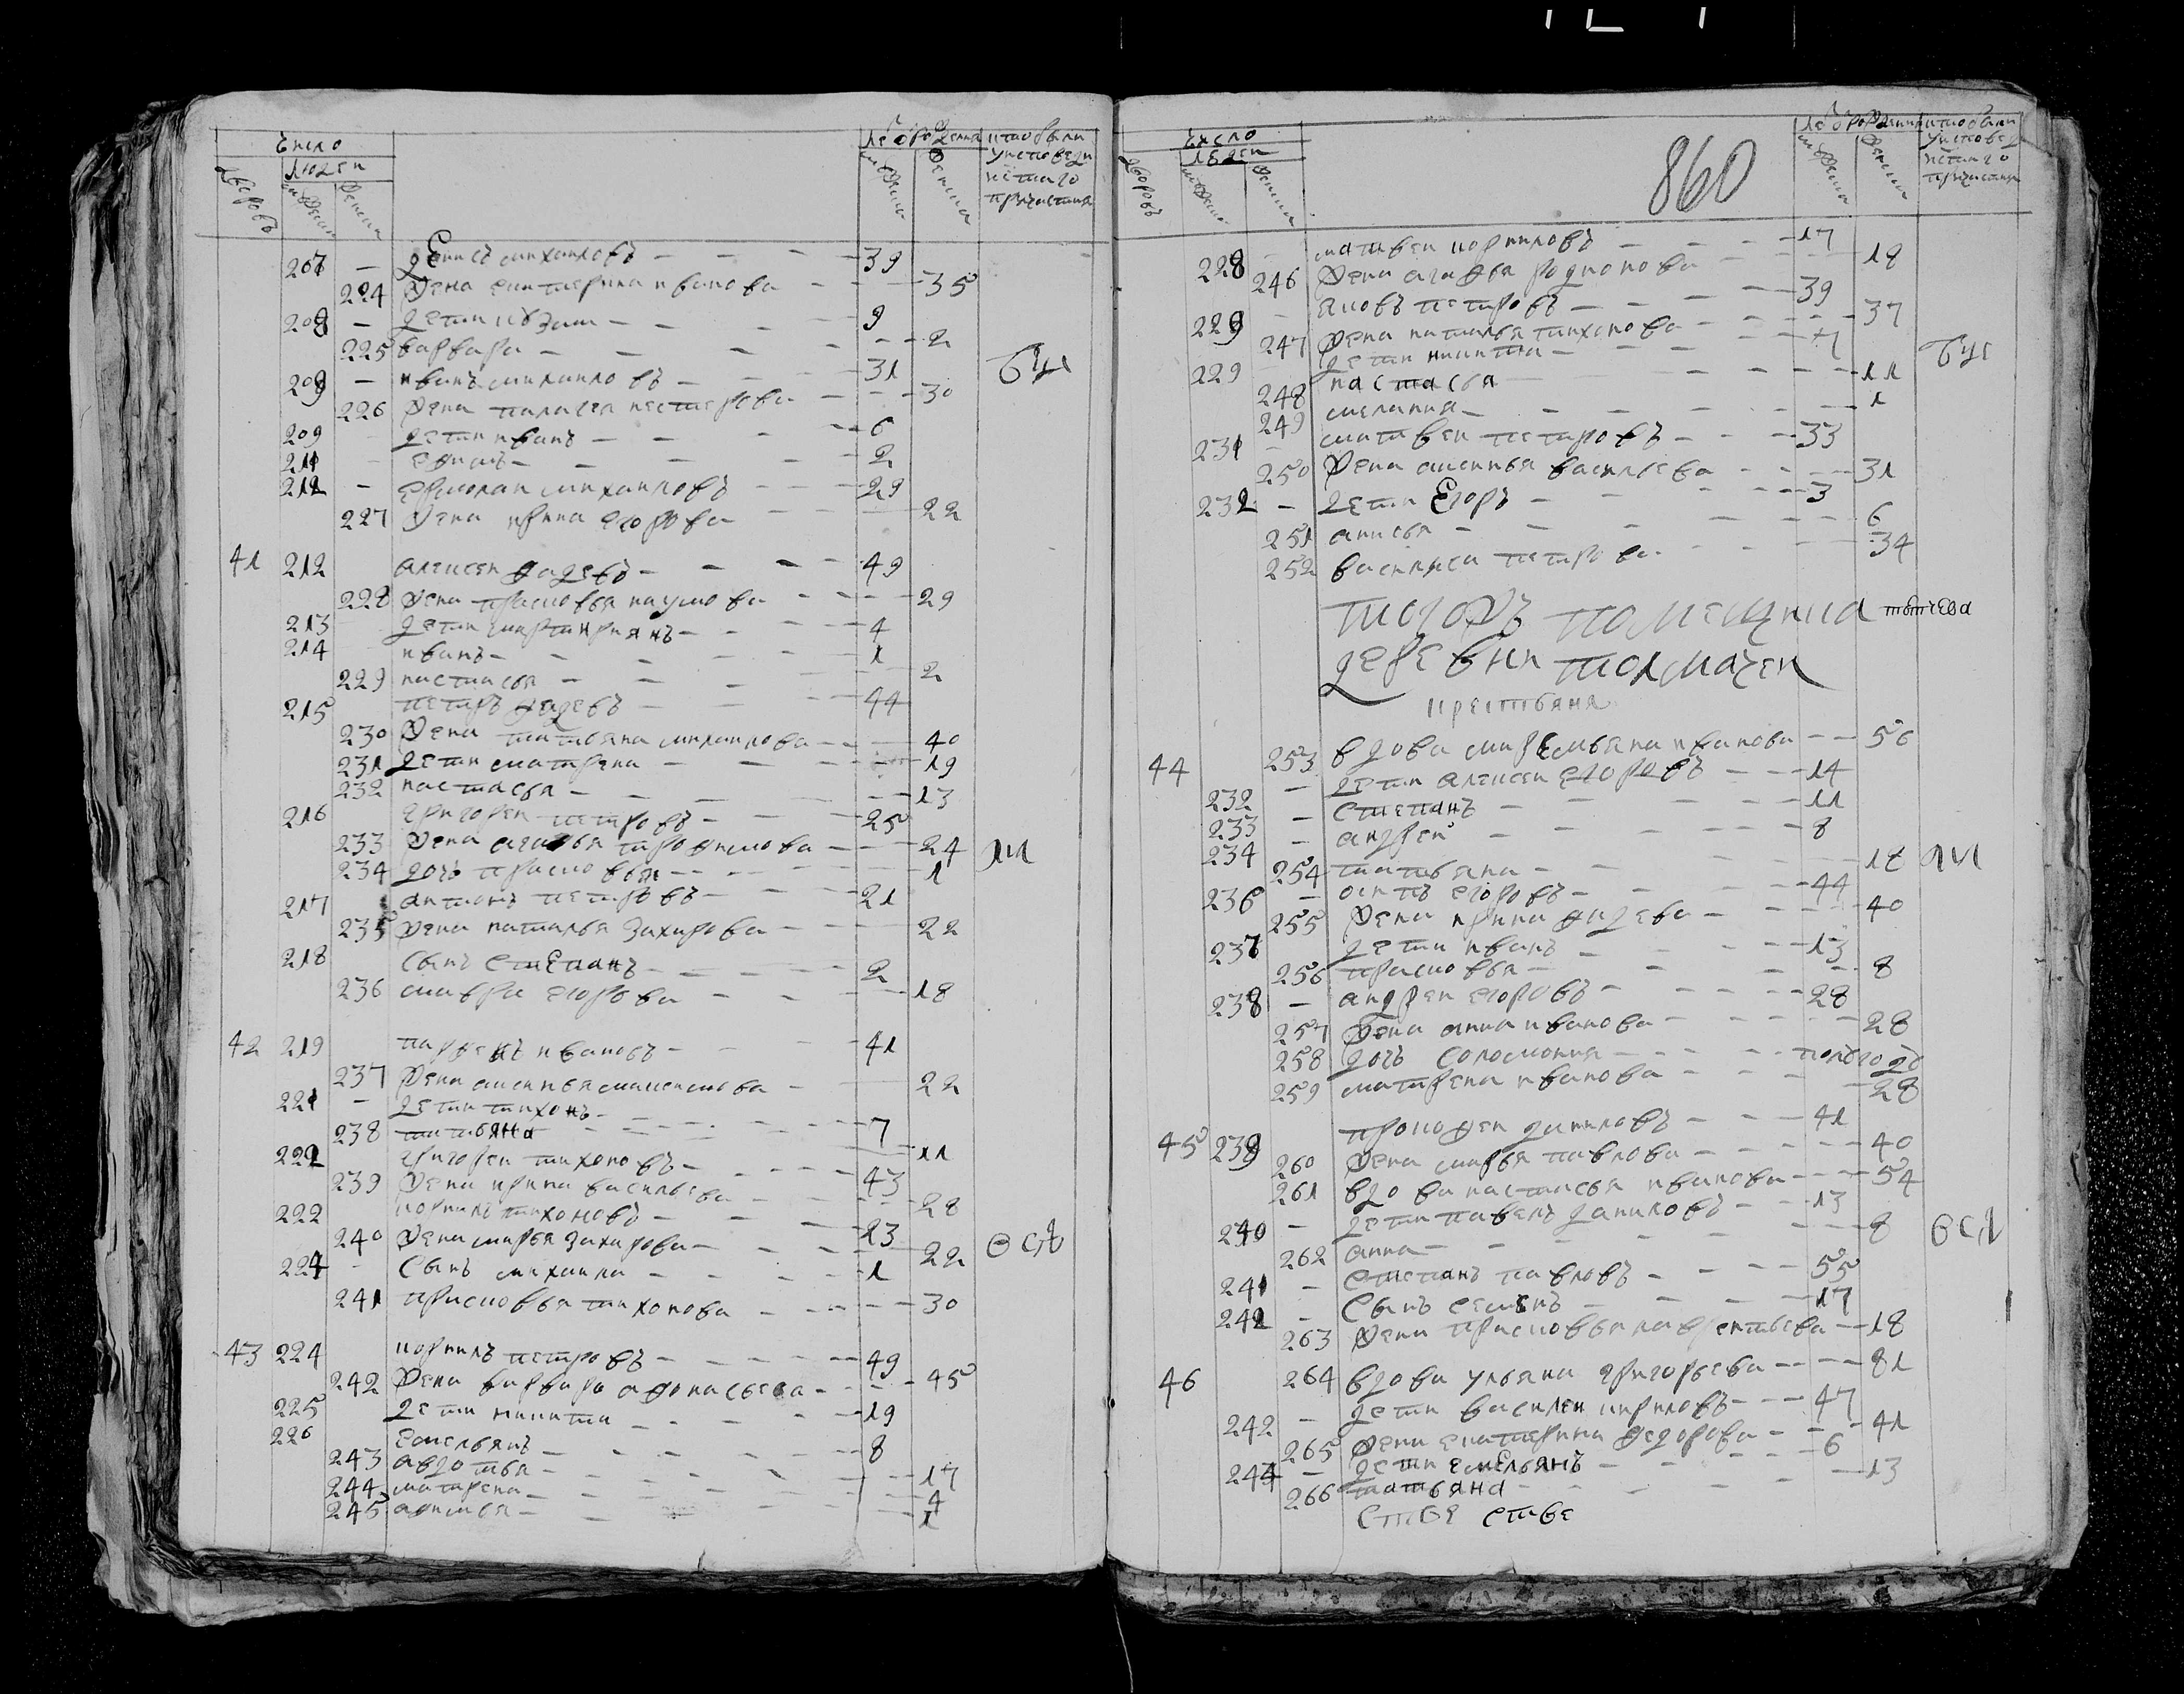 число
людей
дворовъ
мужеска
женска
лѣ ѿ рождения
мужеска
женска
кто были
у исповеди
и с̃таго
причастия
207 — Денисъ михаиловъ — 39
224 жена екатерина иванова — 35
208 — дети кузма — 9
225 варвара — 2
209 — иванъ михаило въ — 31
226 жена палагея нестерова — 30
209 дети иванъ — 6
211 ефимъ — 2
212 — ермолаи михаиловъ — 29
227 жена ирина егорова 22
41 212 алексеи фадеевъ — 49
228 жена прасковья наумова — 29
213 дети мартинриянъ — 4
214 иванъ — 1
229 настасья — 2
215 петръ фадеевъ — 44
230 жена татьяна михаилова — 40
231 дети матрена — 19
232 настасья — 13
216 григореи петровъ — 25
233 жена агафья трофимова — 24
234 дочь прасковья — 1
217 антонъ петровъ — 21
235 жена наталья захарова — 22
218 сынъ степанъ — 2
236 мавра егорова — 18
42 219 парфенъ ивановъ — 41
237 жена аксинья максимова — 22
221 — дети тихонъ — 7
238 татьяна — 11
222 григореи тихоновъ — 43
239 жена ирина васильева — 28
222 корнилъ тихоновъ — 23
240 жена марья захарова — 22
224 — сынъ михаила — 1
241 прасковья тихонова — 30
43 224 корнилъ петровъ — 49
242 жена варвара афонасьева — 45
225 дети никита — 19
226 емельянъ — 8
243 авдотья — 17
244 матрена — 4
245 афимья — 1
860
число
людеи
дворовъ
мужеска
женска
лѣ ѿ рождения
мужеска
женска
кто были
у исповеди
и с̃таго
причастия
228 матвеи корниловъ — 17
246 жена агафья родионова — 18
229 яковъ петровъ — 39
247 жена наталья тихонова — 37
229 дети никита — 7
248 настасья — 11
249 мелания — 1
231 матвеи петровъ — 33
250 жена аксинья васильева — 31
232 — дети Егоръ — 3
251 анисья — 6
252 василиса петрова — 34
тогожъ помещика
деревни толмачеи
крестьяня
44 253 вдова маремьяна иванова — 56
232 — дети алексеи егоровъ — 14
233 — степанъ — 11
234 — андреи — 8
254 татьяна — 18
236 — осипъ егоровъ — 44
255 жена ирина фадеева — 40
237 дети иванъ — 13
256 прасковья — 8
238 — андреи егоровъ — 28
257 жена анна иванова — 28
258 дочь соломония — полъгода
259 матрена иванова — 28
45 239 прокофеи даниловъ — 41
260 жена марья павлова — 40
261 вдова настасья иванова — 54
240 — дети павелъ даниловъ — 13
262 анна — 8
241 — степанъ павловъ — 55
242 — сынъ семенъ — 17
263 жена прасковья лаврентьева — 18
46 264 вдова ульяна григорьева — 81
242 — дети василеи кириловъ — 47
265 жена екатерина федорова — 41
244 — дети емельянъ — 6
266 татьяна — 13